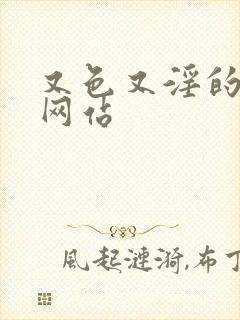 又色又淫的
网站
風起漣漪,布丁